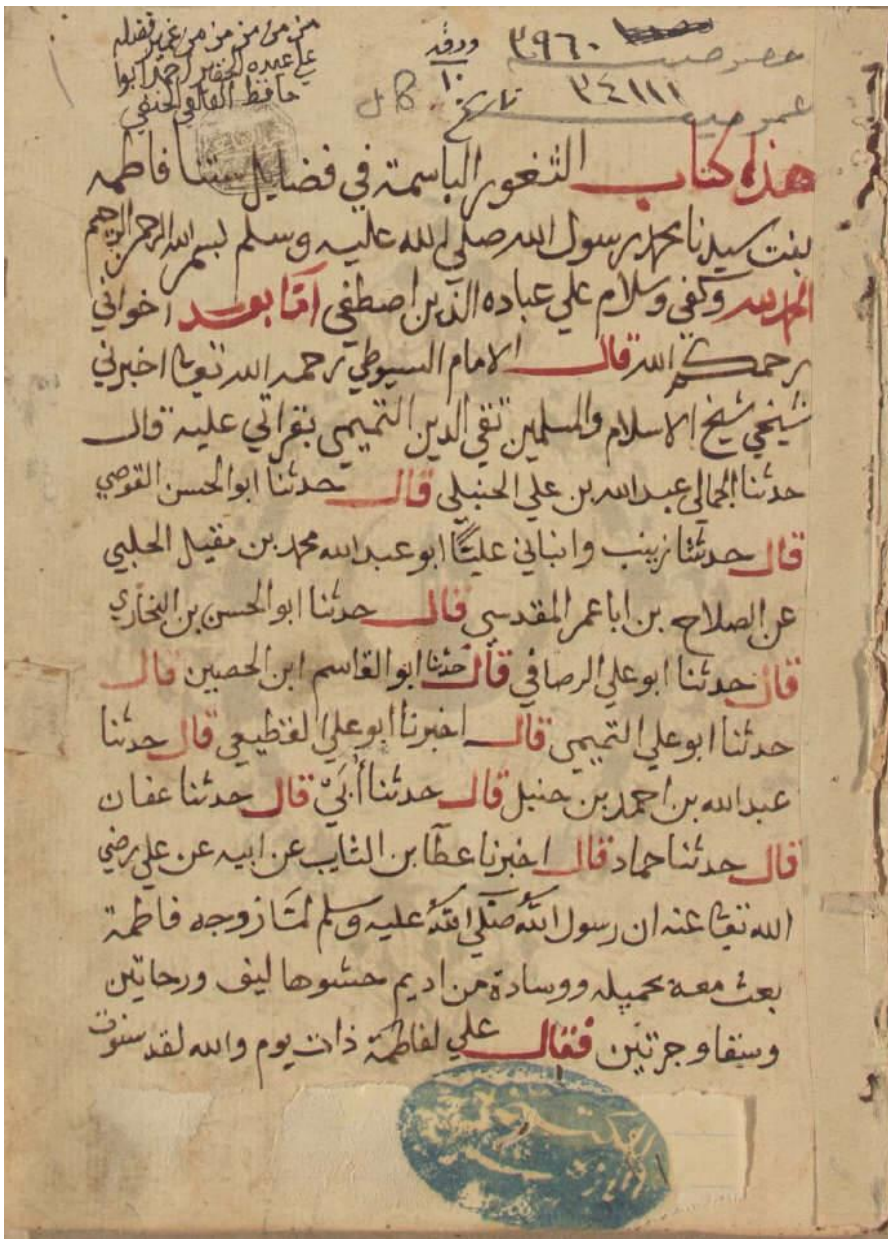 من من من من من غريز فضله
علي عبده الحقير احمد ابوا
حافظ الحنفي
خصوصيه ٣٩٦٠ ورقه
عموميه ٣٤١١١ تاريخ ١٠
هذا كتاب الثغور الباسمة في فضايل ستنا فاطمه
بنت سيدنا محمد رسول الله صلي الله عليه وسلم بسم الله الرحمن الرحيم
الحمد لله وكفي وسلام علي عباده الذين اصطفي أمّا بعد اخواني
رحمكم الله قال الامام السيوطي رحمه الله تعا اخبرني
شيخي شيخ الاسلام والمسلمين تقي الدين التميمي بقراتي عليه قال
حدثنا الجمالي عبد الله بن علي الحنبلي قال حدثنا ابو الحسن القوصي
قال حدثتنا زينب وانباني عليًّا ابو عبد الله محمد بن مقيل الحلبي
عن الصلاح بن ابا عمر المقدسي قال حدثنا ابو الحسن بن البخاري
قال حدثنا ابو علي الرصافي قال حدثنا ابو القاسم ابن الحصين قال
حدثنا ابو علي التميمي قال اخبرنا ابو علي القتطيعي قال حدثنا
عبد الله بن احمد بن حنبل قال حدثنا أَبَيْ قال حدثنا عفان
قال حدثنا حماد قال اخبرنا عطا بن الثايب عن ابيه عن علي رضي
الله تعا عنه ان رسول اللهُ صَلي اللهُ عليه وسلم لمّا زوجه فاطمة
بعث معه بحميله ووسادة من اديم حشوها ليف ورحاتين
وسقا وجرتين فقال علي لفاطمة ذات يوم والله لقد سنوت